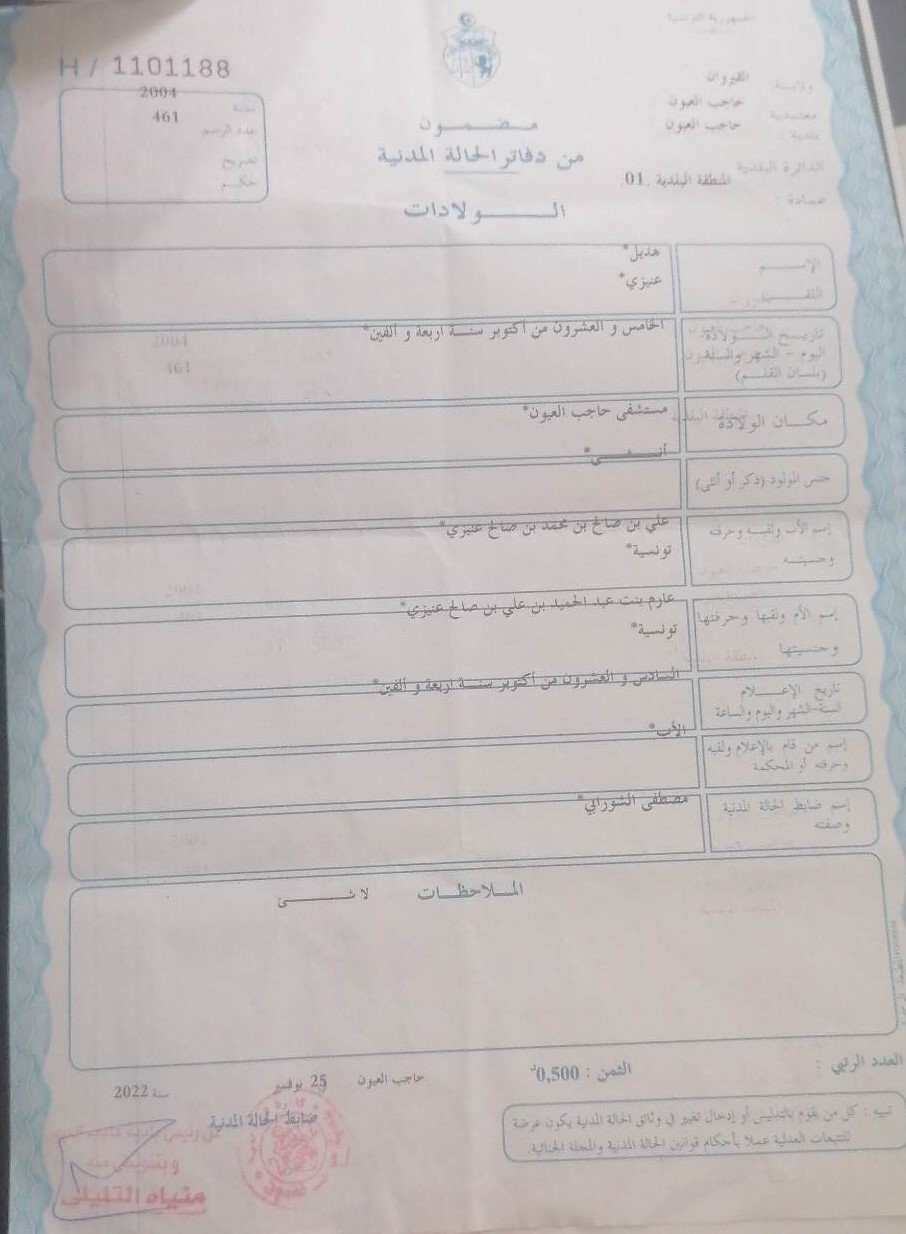 الجمهورية التونسية
H / 1101188
ولايـة : القيروان
معتمدية : حاجب العيون
بلدية : حاجب العيون
الدائرة البلدية : المنطقة البلدية .01.
عمادة :
سنة 2004
عدد الرسم 461
تصريح
حكم
مـضـمـــون
من دفاتر الحالة المدنية
الـــــولادات
الإســــم هديل*
اللقـــب عنيزي*
تاريـــخ الـــولادة: الخامس و العشرون من أكتوبر سنــة اربعة و ألفين*
اليوم - الشهر والسنة
(بلسان القلــم)
مكـــان الولادة مستشفى حاجب العيون*
أنـــثــــى*
جنس المولود (ذكر أو أنثى)
إسم الأب ولقبــه وحرفته علي بن صالح بن محمد بن صالح عنيزي*
وجنسيتــه تونسية*
إسم الأم ولقبها وحرفتها عارم بنت عبد الحميد بن علي بن صالح عنيزي*
وجنسيتها تونسية*
تاريخ الإعـــــلام السادس و العشرون من أكتوبر سنــة اربعة و ألفين*
السنة-الشهر واليوم والساعة
إسم من قام بالإعلام ولقبه الأب*
وحرفته أو المحكمة
إسم ضابط الحالة المدنية مصطفى الشورابي*
وصفته
المــلاحظـــات لا شــــــئ
العدد الرتبي :
الثمن : 0,500د
حاجب العيون 25 نوفمبر سنة 2022
ضابط الحالة المدنية
تنبيه : كل من يقوم بالتدليس أو إدخال تغيير في وثائق الحالة المدنية يكون عرضة
للتتبعات العدلية عملا بأحكام قوانين الحالة المدنية والمجلة الجنائية.
وبتفويض منه
منياه التليلي